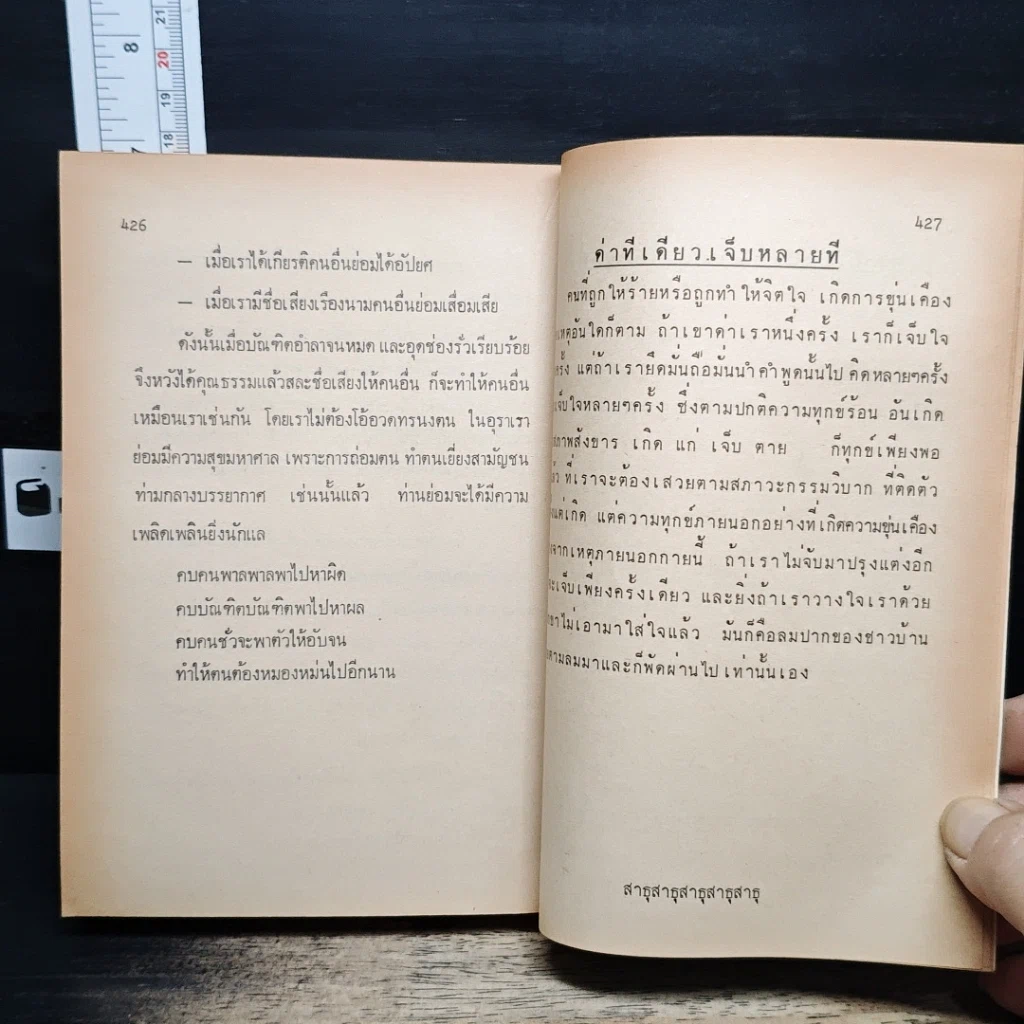 8
7
21
20
19
18
426
— เมื่อเราได้เกียรติคนอื่นย่อมได้อัปยศ
— เมื่อเรามีชื่อเสียงเรืองนามคนอื่นย่อมเสื่อมเสีย
ดังนั้นเมื่อบัณฑิตอำลาจนหมด และอุดช่องรั่วเรียบร้อย
จึงหวังได้คุณธรรมแล้วสละชื่อเสียงให้คนอื่น ก็จะทำให้คนอื่น
เหมือนเราเช่นกัน โดยเราไม่ต้องโอ้อวดทรนงตน ในอุราเรา
ย่อมมีความสุขมหาศาล เพราะการถ่อมตน ทำตนเยี่ยงสามัญชน
ท่ามกลางบรรยากาศ เช่นนั้นแล้ว ท่านย่อมจะได้มีความ
เพลิดเพลินยิ่งนักแล
คบคนพาลพาลพาไปหาผิด
คบบัณฑิตบัณฑิตพาไปหาผล
คบคนชั่วจะพาตัวให้อับจน
ทำให้ตนต้องหมองหม่นไปอีกนาน
427
ด่าทีเดียว.เจ็บหลายที
คนที่ถูกให้ร้ายหรือถูกทำให้จิตใจ เกิดการขุ่นเคือง
เหตุอันใดก็ตาม ถ้าเขาด่าเราหนึ่งครั้ง เราก็เจ็บใจ
ครั้ง แต่ถ้าเรายึดมั่นถือมั่นนำคำพูดนั้นไป คิดหลายๆครั้ง
เจ็บใจหลายๆครั้ง ซึ่งตามปกติความทุกข์ร้อน อันเกิด
สังขาร เกิด แก่ เจ็บ ตาย ก็ทุกข์เพียงพอ
ที่เราจะต้องเสวยตามสภาวะกรรมวิบาก ที่ติดตัว
แต่เกิด แต่ความทุกข์ภายนอกอย่างที่เกิดความขุ่นเคือง
จากเหตุภายนอกกายนี้ ถ้าเราไม่จับมาปรุงแต่งอีก
เจ็บเพียงครั้งเดียว และยิ่งถ้าเราวางใจเราด้วย
ไม่เอามาใส่ใจแล้ว มันก็คือลมปากของชาวบ้าน
ตามลมมาและก็พัดผ่านไป เท่านั้นเอง
สาธุสาธุสาธุสาธุสาธุ